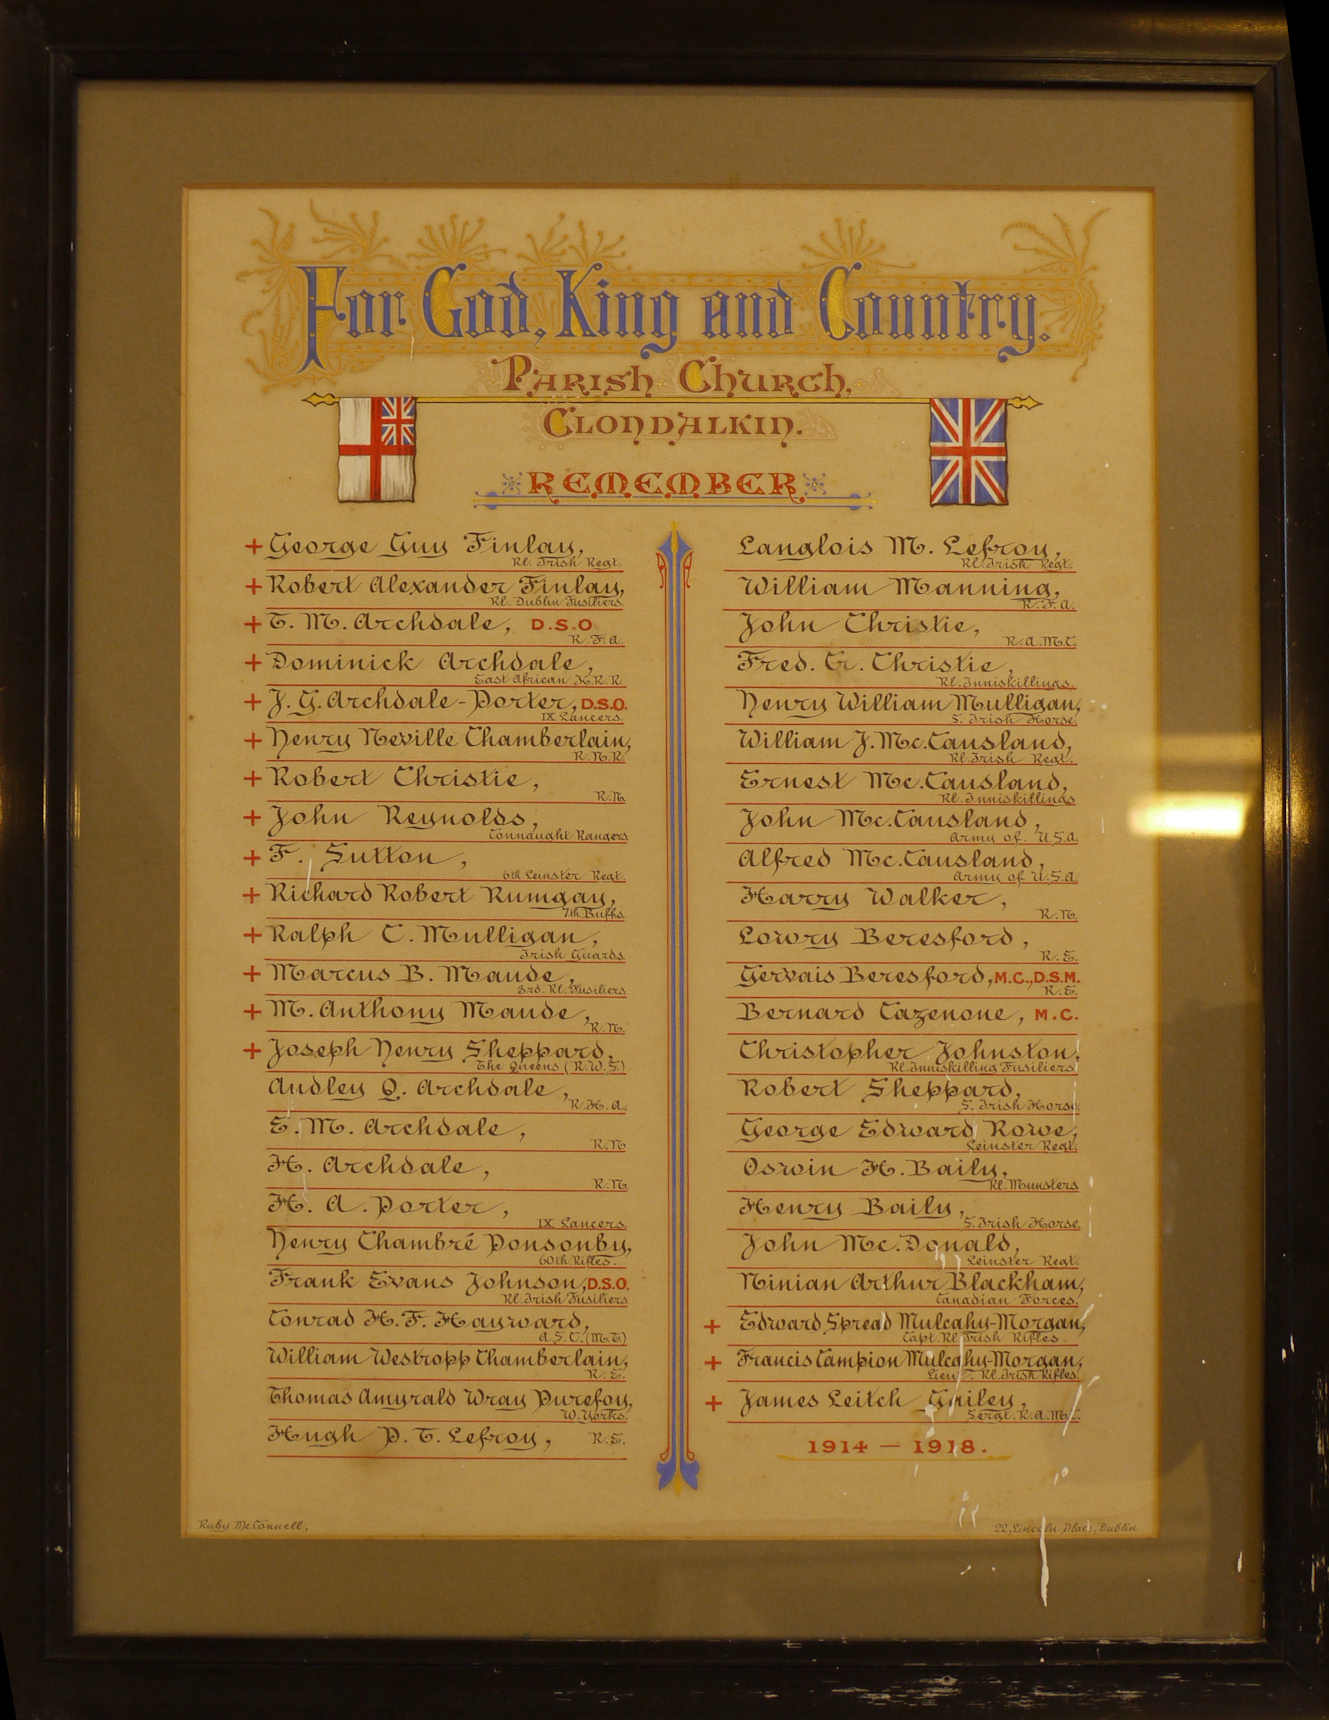 For God, King and Country.
Parish Church,
Clondalkin.
REMEMBER
+ George Guy Finlay,
Rl. Irish Regt.
+ Robert Alexander Finlay,
Rl. Dublin Fusiliers.
+ T. M. Archdale, D.S.O
R.F.A.
+ Dominick Archdale,
East African K.R.R.
+ J. G. Archdale-Porter, D.S.O.
IX Lancers.
+ Henry Neville Chamberlain,
R.N.R.
+ Robert Christie,
R.N.
+ John Reynolds,
Connaught Rangers
+ F. Sutton,
6th Leinster Regt.
+ Richard Robert Rumgay,
7th Buffs.
+ Ralph C. Mulligan,
Irish Guards.
+ Marcus B. Maude,
3rd. Rl. Fusiliers
+ M. Anthony Maude,
R.N.
+ Joseph Henry Sheppard,
The Queens (R.W.S.)
Audley Q. Archdale,
R.H.A.
E. M. Archdale,
R.N
H. Archdale,
R.N
H. A. Porter,
IX Lancers.
Henry Chambré Ponsonby,
60th Rifles.
Frank Evans Johnson, D.S.O.
Rl. Irish Fusiliers
Conrad H. F. Hayward,
A.S.C. (M.T)
William Westropp Chamberlain,
R.E.
Thomas Amyrald Wray Purefoy,
W. Yorks.
Hugh P. T. Lefroy, R.E.
Langlois M. Lefroy,
Rl. Irish Regt.
William Manning,
R.F.A.
John Christie,
R.A.M.C.
Fred. G. Christie,
Rl. Inniskillings.
Henry William Mulligan,
S. Irish Horse.
William J. Mc.Causland,
Rl. Irish Regt.
Ernest Mc.Causland,
Rl. Inniskillings
John Mc.Causland,
Army of. U.S.A.
Alfred Mc.Causland,
Army of U.S.A.
Harry Walker,
R.N.
Lowry Beresford,
R.E.
Gervais Beresford, M.C., D.S.M.
R.E.
Bernard Cazenone, M.C.
Christopher Johnston,
Rl. Inniskilling Fusiliers
Robert Sheppard,
S. Irish Horse.
George Edward Rowe,
Leinster Regt.
Oswin H. Baily,
Rl. Munsters
Henry Baily,
S. Irish Horse.
John Mc.Donald,
Leinster Regt.
Ninian Arthur Blackham,
Canadian Forces.
+ Edward Spread Mulcahy-Morgan,
Capt. Rl. Irish Rifles.
+ Francis Campion Mulcahy-Morgan,
Lieut. Rl. Irish Rifles.
+ James Leitch Gailey,
Sergt. R.A.M.C.
1914 — 1918.
Ruby McConnell,
22, Lincoln Place, Dublin